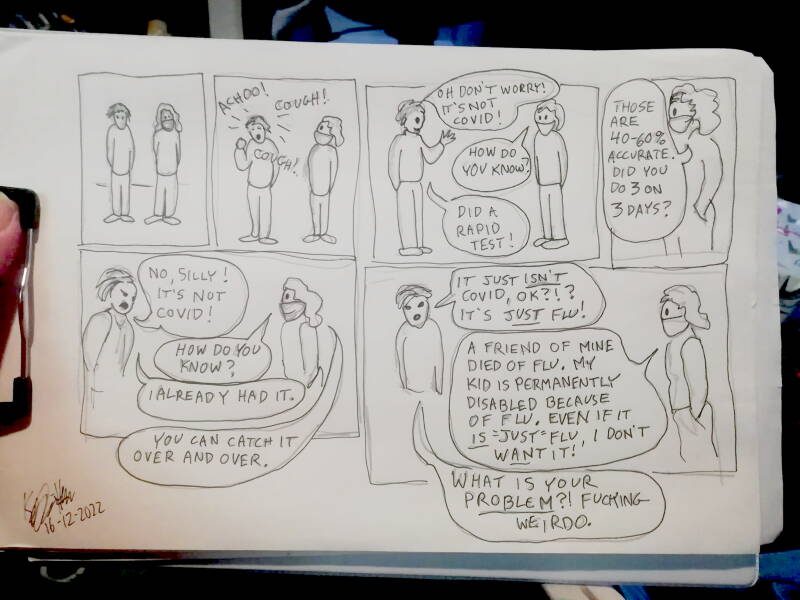 ACHOO!
COUGH!
COUGH!
OH DON'T WORRY!
IT'S NOT
COVID!
HOW DO
YOU KNOW?
DID A
RAPID
TEST!
THOSE
ARE
40-60%
ACCURATE.
DID YOU
DO 3 ON
3 DAYS?
NO, SILLY!
IT'S NOT
COVID!
HOW DO YOU
KNOW?
I ALREADY HAD IT.
YOU CAN CATCH IT
OVER AND OVER.
IT JUST ISN'T
COVID, OK?!?
IT'S JUST FLU!
A FRIEND OF MINE
DIED OF FLU. MY
KID IS PERMANENTLY
DISABLED BECAUSE
OF FLU. EVEN IF IT
IS "JUST" FLU, I DON'T
WANT IT!
WHAT IS YOUR
PROBLEM?! FUCKING
WEIRDO.
16-12-2022